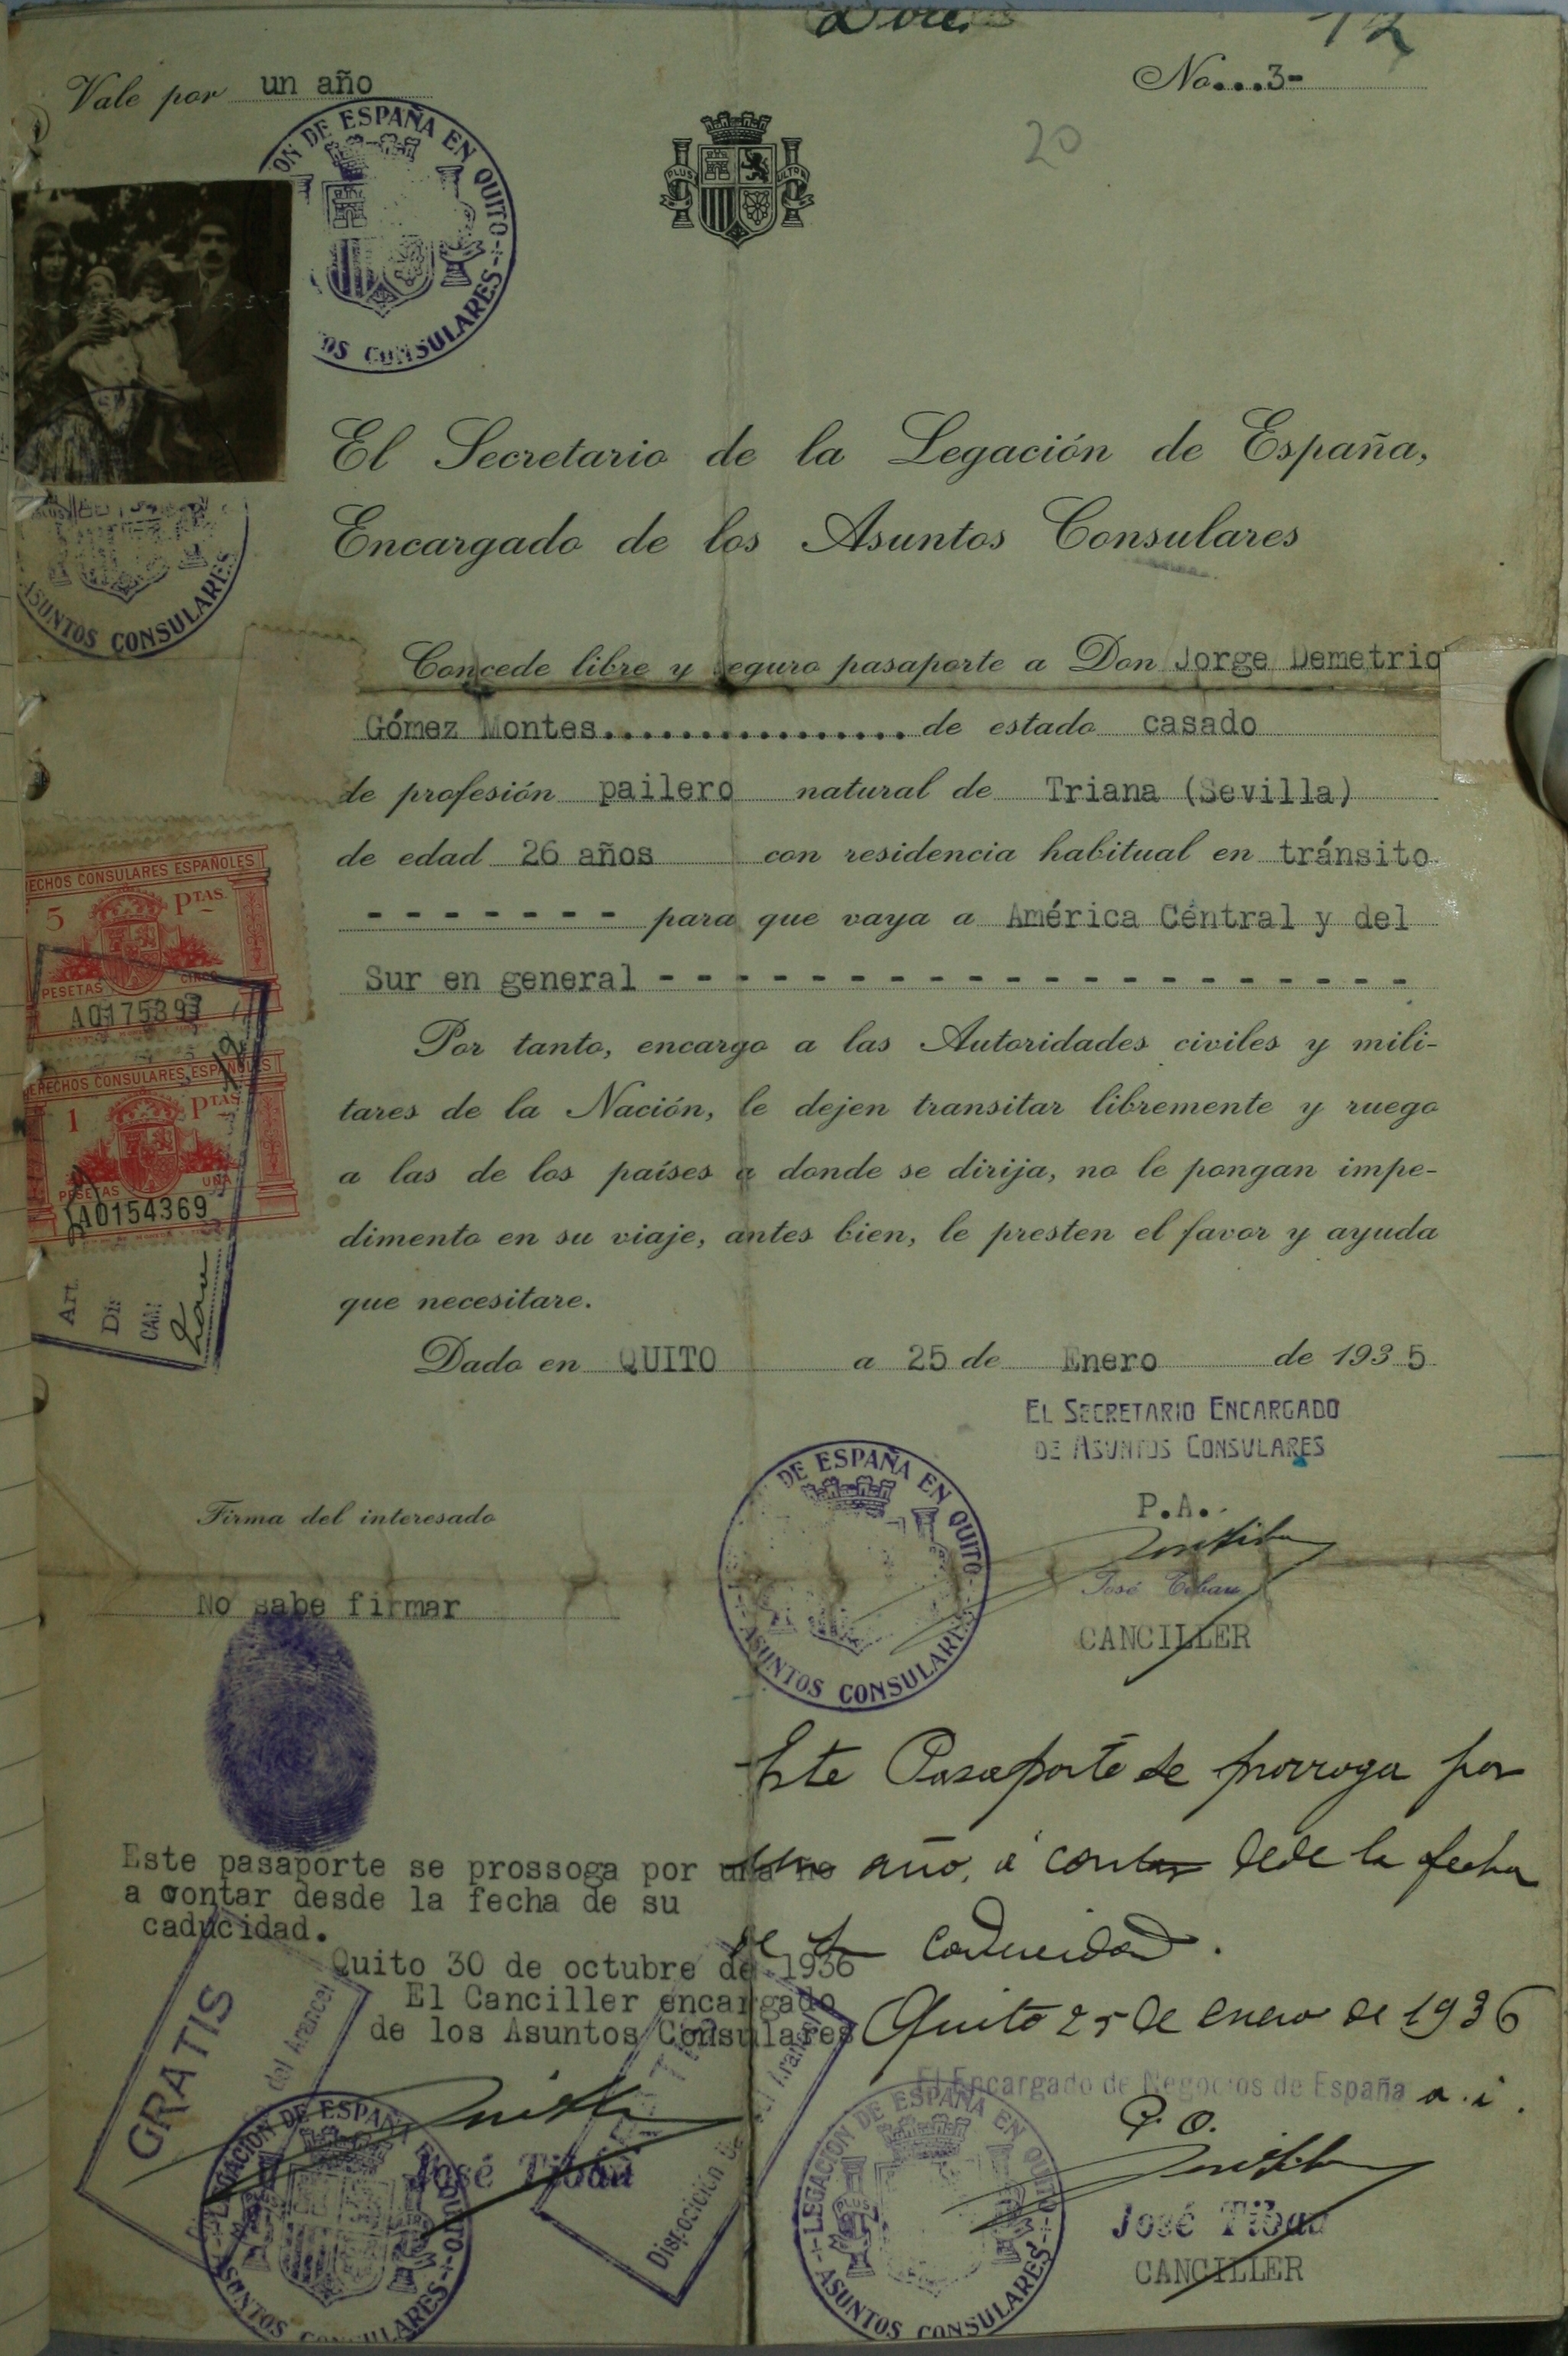 Doce 12
Vale por un año
No...3-
20
DE ESPAÑA EN QUITO
CONSULARES
PLUS ULTRA
El Secretario de la Legación de España,
Encargado de los Asuntos Consulares
ASUNTOS CONSULARES
Concede libre y seguro pasaporte a Don Jorge Demetrio
Gómez Montes................ de estado casado
de profesión pailero natural de Triana (Sevilla)
de edad 26 años con residencia habitual en tránsito
- - - - - - - para que vaya a América Céntral y del
Sur en general - - - - - - - - - - - - - - - - - - - -
Por tanto, encargo a las Autoridades civiles y mili-
tares de la Nación, le dejen transitar libremente y ruego
a las de los países a donde se dirija, no le pongan impe-
dimento en su viaje, antes bien, le presten el favor y ayuda
que necesitare.
DERECHOS CONSULARES ESPAÑOLES
5 PTAS.
PESETAS CINCO
A0175393
DERECHOS CONSULARES ESPAÑOLES
1 PTAS.
PESETAS UNA
A0154369
Art.
Dis
CAN
Dado en QUITO a 25 de Enero de 1935
EL SECRETARIO ENCARGADO
DE ASUNTOS CONSULARES
DE ESPAÑA EN QUITO
ASUNTOS CONSULARES
P.A.
José Tibau
CANCILLER
Firma del interesado
No sabe firmar
Este Pasaporte se prorroga por
un año, a contar desde la fecha
de su caducidad.
Quito 25 de enero de 1936
El Encargado de Negocios de España a.i.
P.O.
José Tibau
CANCILLER
LEGACION DE ESPAÑA EN QUITO
PLUS
ASUNTOS CONSULARES
Este pasaporte se prossoga por
a contar desde la fecha de su
caducidad.
Quito 30 de octubre de 1936
El Canciller encargado
de los Asuntos Consulares
José Tibau
GRATIS
del Arancel
Disposición
del Arancel
LEGACION DE ESPAÑA EN QUITO
ASUNTOS CONSULARES